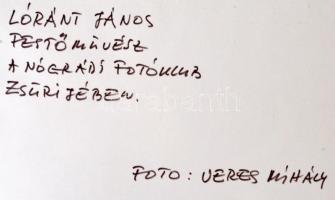 LÓRÁNT JÁNOS
FESTŐMŰVÉSZ
A NÓGRÁDI FOTÓKLUB
ZSŰRIJÉBEN.
FOTO: VERES MIHÁLY